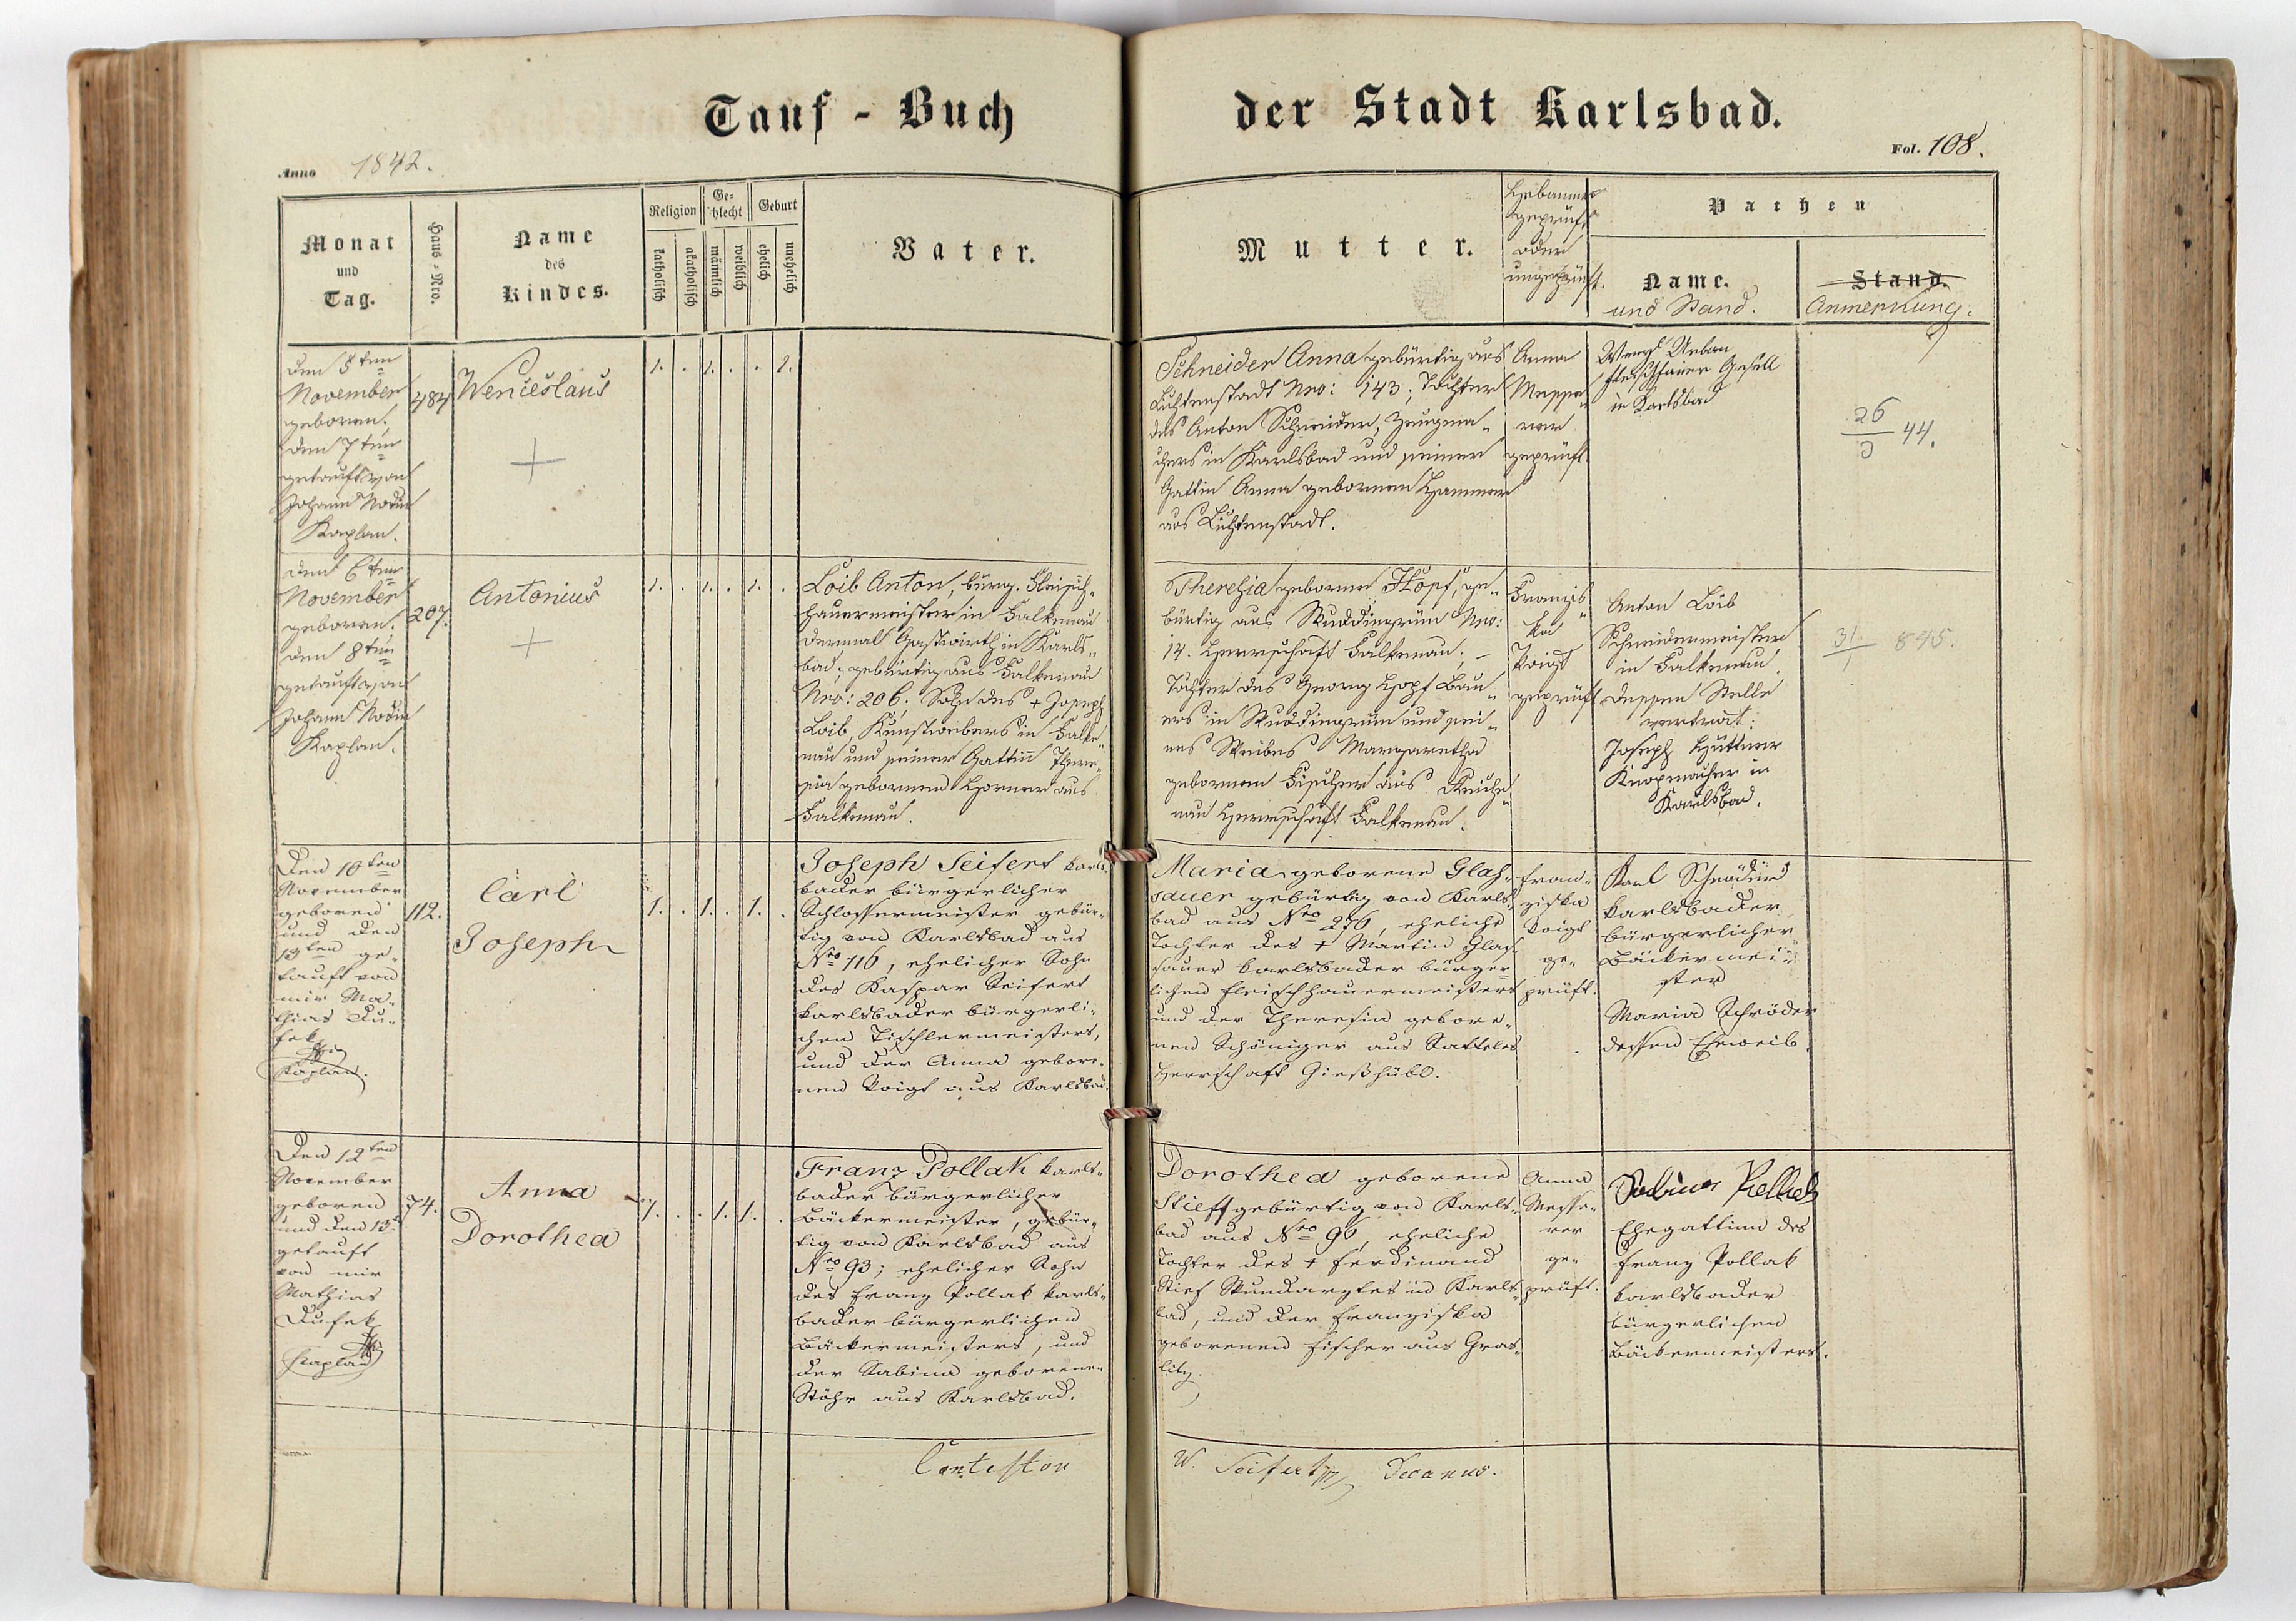 Tauf - Buch der Stadt Karlsbad.
Anno 1842.
Fol. 108.
Monat und Tag.
Haus-Nro.
Name des Kindes.
Religion
katholisch
akatholisch
Ge-schlecht
männlich
weiblich
Geburt
ehelich
unehelich
Vater.
Mutter.
Hebamme geprüft oder ungeprüft.
Pathen
Name. und Stand.
Stand. Anmerkung.
den 5ten
November
geboren,
den 7ten
getauft von
Johann
Kaplan.
484
Wenceslaus
1. . 1. . . 1.
Schneider Anna gebürtig aus
Lichtenstadt Nro: 143; Tochter
des Anton Schneider, Zeugma-
chers in Karlsbad und seiner
Gattin Anna gebornen Hammer
aus Lichtenstadt.
Anna
geprüft
Wenzl Urban
Fleischhauer Gesell
in Karlsbad
26
3 44.
den 6ten
November
geboren.
den 8ten
getauft von
Johann
Kaplan.
207.
Antonius
1. . 1. . 1. .
Loib Anton, bürg. Fleisch-
hauermeister in Falkenau
dermal Gastwirth in Karls-
bad; gebürtig aus Falkenau
Nro: 206. Sohn des + Joseph
Loib, in Falke-
nau und seiner Gattin There-
sia gebornen Horner aus
Falkenau.
Theresia geborne Hopf, ge-
bürtig aus Nro:
14. Herrschaft Falkenau; -
Tochter des Georg Hopf Bau-
ers in und sei-
nes Weibes Margaretha
gebornen Fischer aus Reiche-
nau Herrschaft Falkenau.
Franzis
ka
Voigt
geprüft
Anton Loib
Schneidermeister
in Falkenau
dessen Stelle
vertrat:
Joseph Hüttner
Knopmacher in
Karlsbad.
31.
1 845.
Den 10ten
November
geboren
und den
13ten ge-
tauft von
mir Ma-
thias Du-
fek
Kaplan.
112.
Carl
Joseph
1. . 1. . 1. .
Joseph Seifert karls-
bader bürgerlicher
Schlossermeister gebür-
tig von Karlsbad aus
Nro 116, ehelicher Sohn
des Kaspar Seifert
karlsbader bürgerli-
chen Tischlermeisters,
und der Anna gebore-
nen Voigt aus Karlsbad.
Maria geborene Glas-
sauer gebürtig von Karls-
bad aus Nro 276, eheliche
Tochter des + Martin Glas-
sauer karlsbader bürger-
lichen Fleischhauermeisters
und der Theresia gebore-
nen Schöniger aus Satteles
Herrschaft Gießhübl.
Fran-
ziska
Voigt
ge-
prüft.
Karl Schröder
karlsbader
bürgerlicher
Bäckermei-
ster
Maria Schröder
dessen Eheweib.
Den 12ten
November
geboren
und den 13
getauft
von mir
Mathias
Dufek
Kaplan
74.
Anna
Dorothea
1. . . 1. 1. .
Franz Pollak karls-
bader bürgerlicher
Bäckermeister, gebür-
tig von Karlsbad aus
Nro 93; ehelicher Sohn
des Franz Pollak karls-
bader bürgerlichen
Bäckermeisters, und
der Sabina geborene-
Stöhr aus Karlsbad.
Dorothea geborene
Stieff gebürtig von Karls-
bad aus Nro 96, eheliche
Tochter des + Ferdinand
Stief Wundarztes in Karls-
bad, und der Franziska
geborenen Fischer aus Gras-
litz.
Anna
Messe-
rer
ge-
prüft.
Sabina Pollak
Ehegattinn des
Franz Pollak
karlsbader
bürgerlichen
Bäckermeisters.
W. Seifert Decanus.